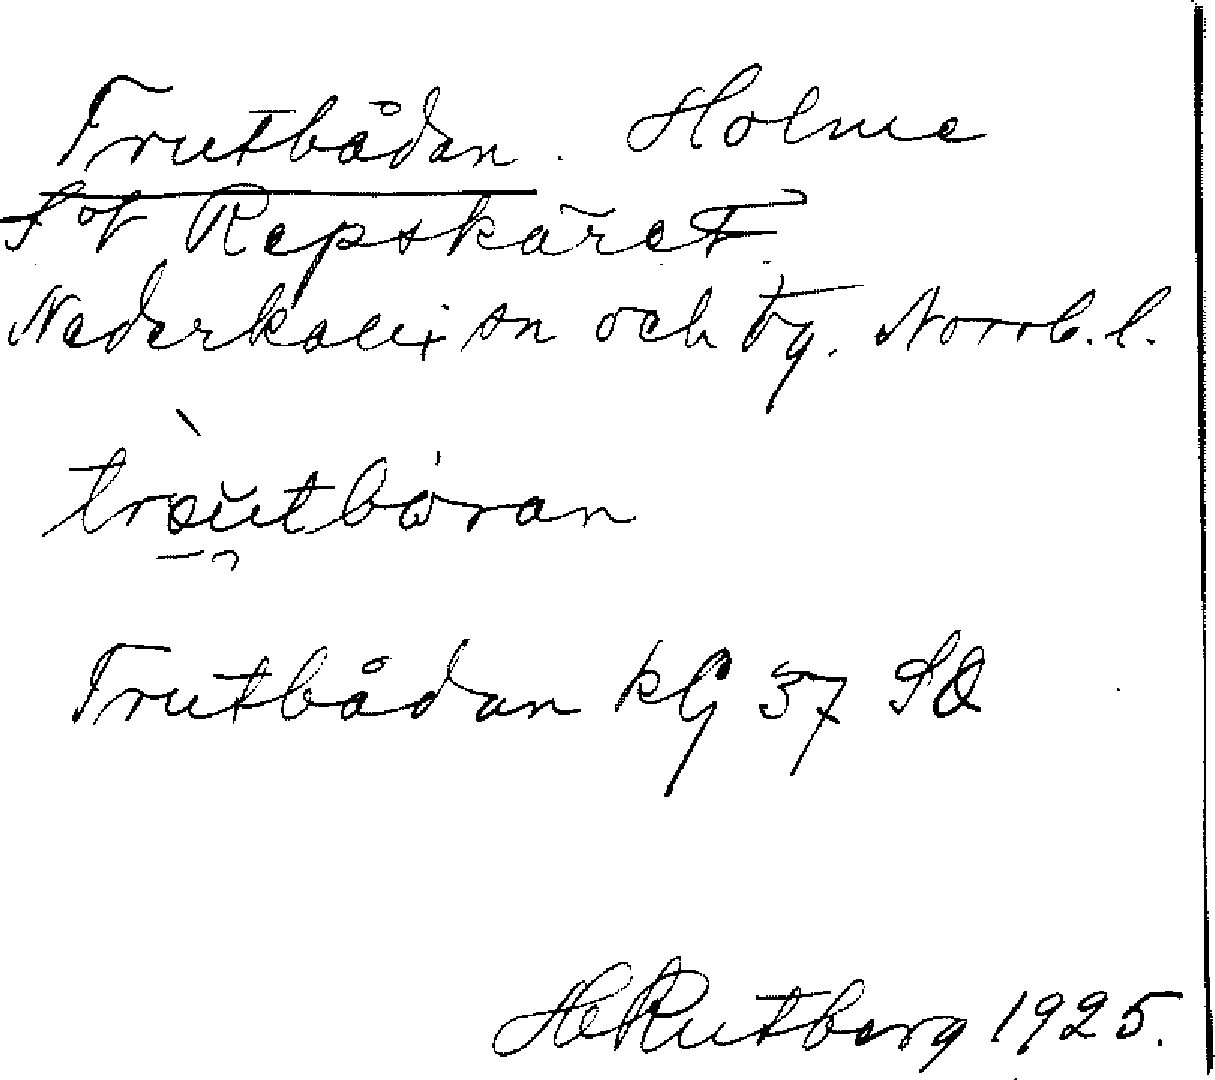 Trutbådan. Holme
S of Repskäret.
Nederkalix sn och tg. Norrb. l.
tròutbåran
Trutbådan kG 37 SO
H Rutberg 1925.